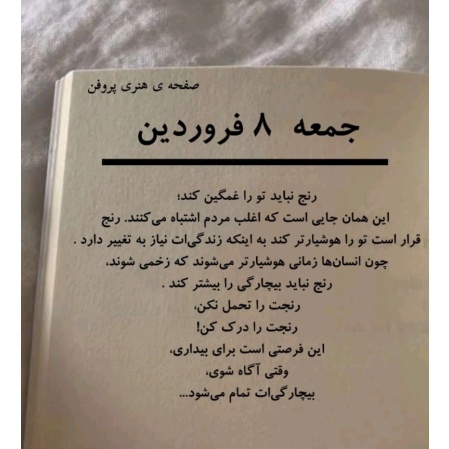 صفحه ی هنری پروفن
جمعه ۸ فروردین
رنج نباید تو را غمگین کند؛
این همان جایی است که اغلب مردم اشتباه می‌کنند. رنج
قرار است تو را هوشیارتر کند به اینکه زندگی‌ات نیاز به تغییر دارد .
چون انسان‌ها زمانی هوشیارتر می‌شوند که زخمی شوند،
رنج نباید بیچارگی را بیشتر کند .
رنجت را تحمل نکن،
رنجت را درک کن!
این فرصتی است برای بیداری،
وقتی آگاه شوی،
بیچارگی‌ات تمام می‌شود...